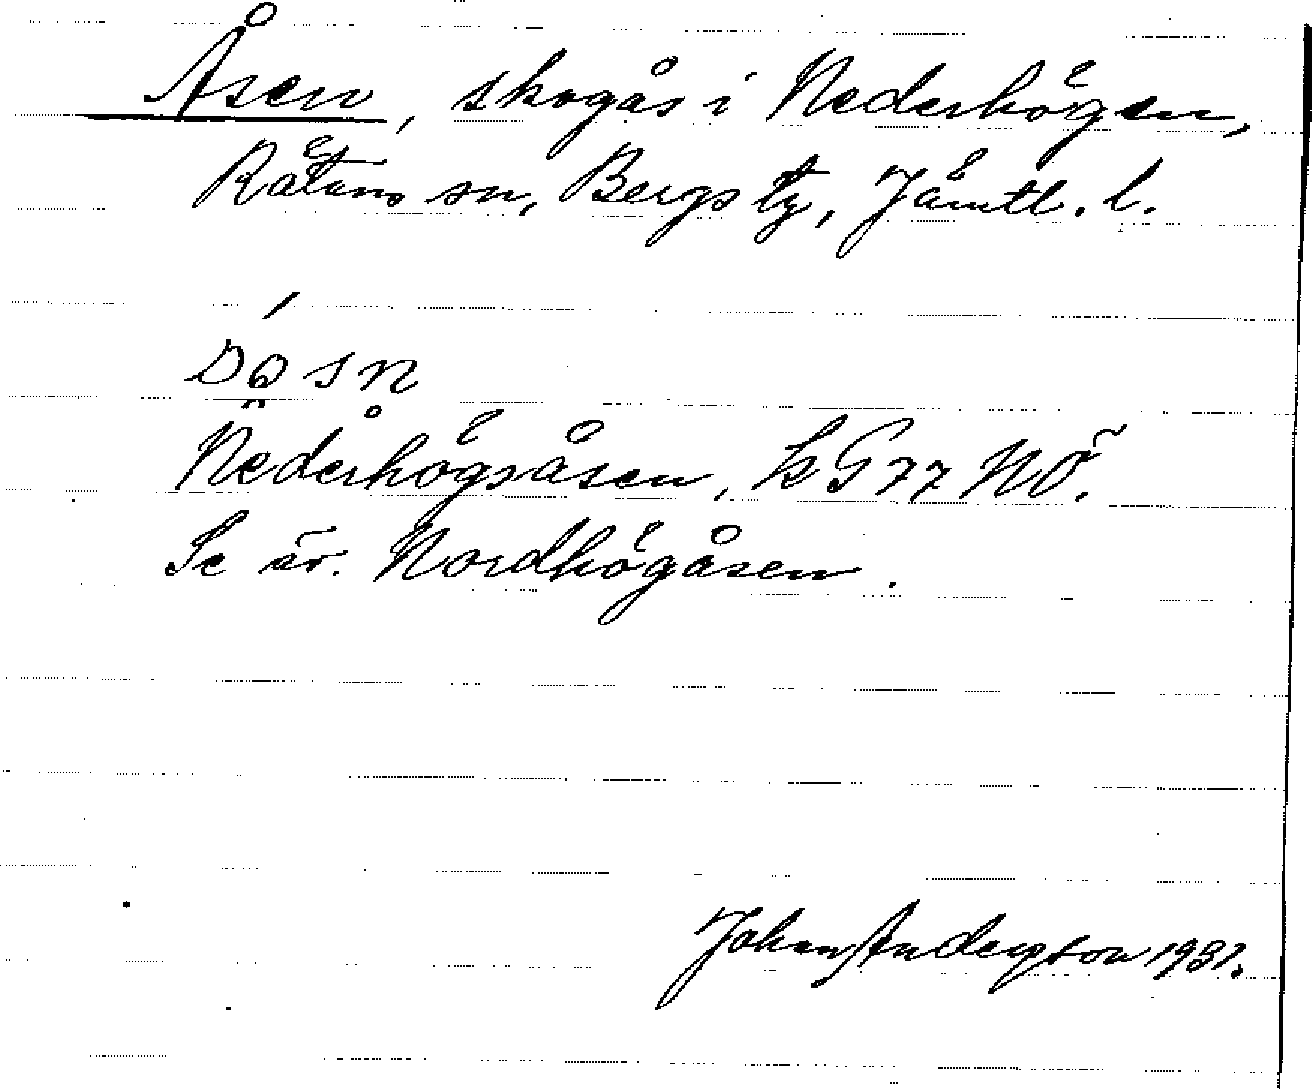 Åsen, skogås i Nederhögen,
Rätans sn, Bergs tg, Jämtl. l.
Nederhögsåsen, k G 77 NÖ.
Se äv. Nordhögåsen.
Johan Anderson 1931.